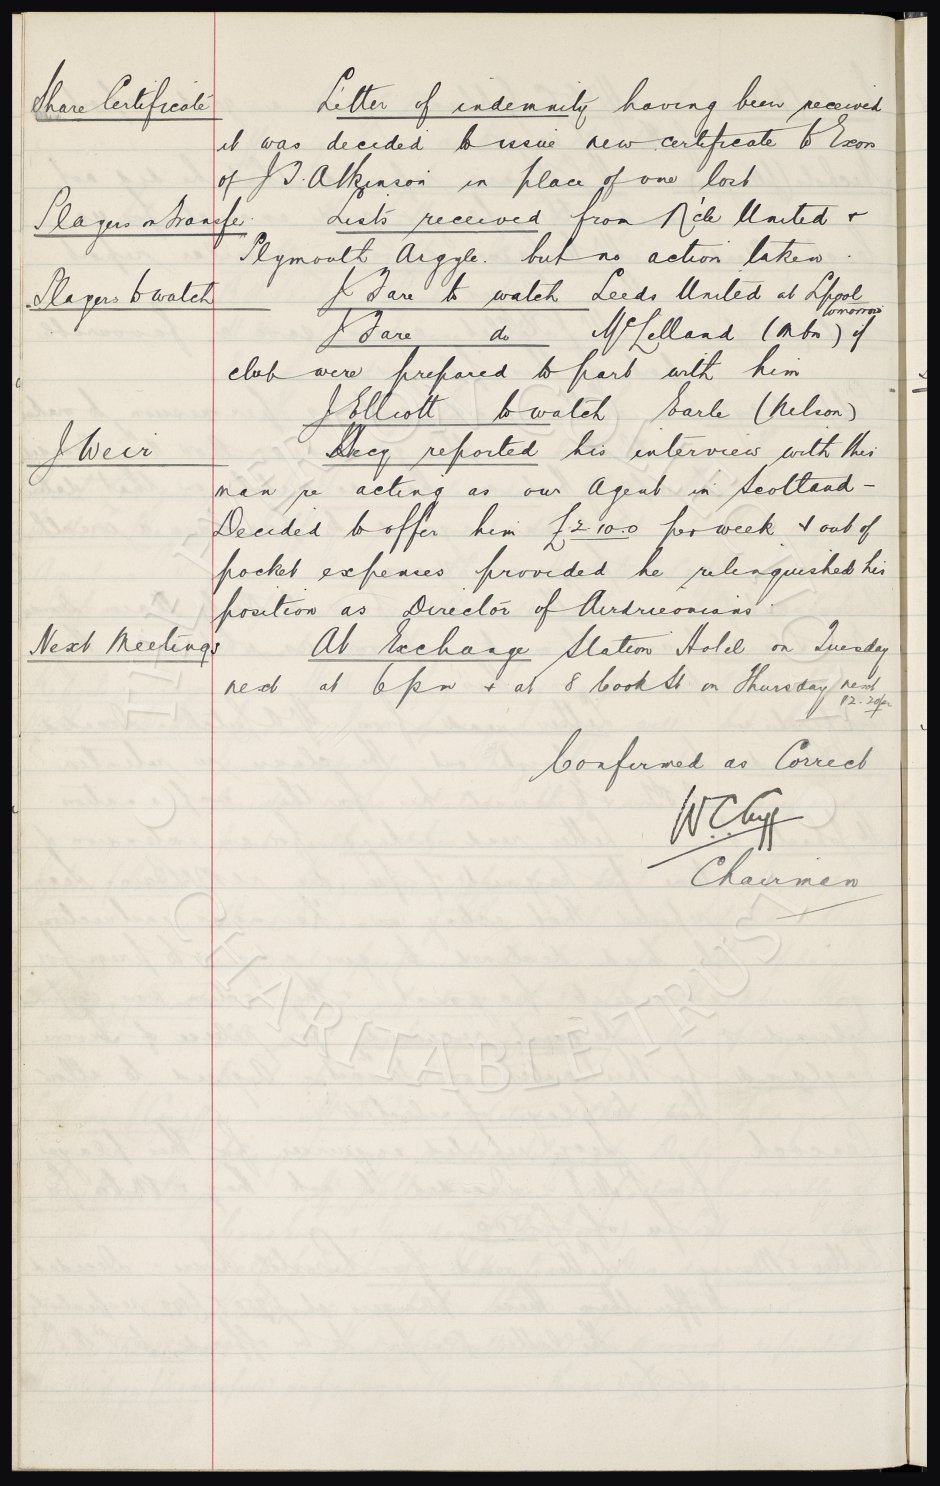 Share Certificate Letter of indemnity having been received
it was decided to issue new certificate to Exors
of J T. Atkinson in place of one lost
Players on transfer Lists received from N'cle United &
Plymouth Argyle. but no action taken.
Players to watch J Fare to watch Leeds United at Lpool
tomorrow
J Fare do McLelland (Mbro) if
club were prepared to part with him
J Elliott to watch Earle (Nelson)
J Weir Secy reported his interview with this
man re acting as our Agent in Scotland -
Decided to offer him £2-10-0 per week & out of
pocket expenses provided he relinquished his
position as Director of Airdrieonians.
Next Meetings At Exchange Station Hotel on Tuesday
next at 6 pm & at 8 Cook St on Thursday next
12.30pm
Confirmed as Correct
W.C. Cuff
Chairman
THE EVERTON COLLECTION
CHARITABLE TRUST